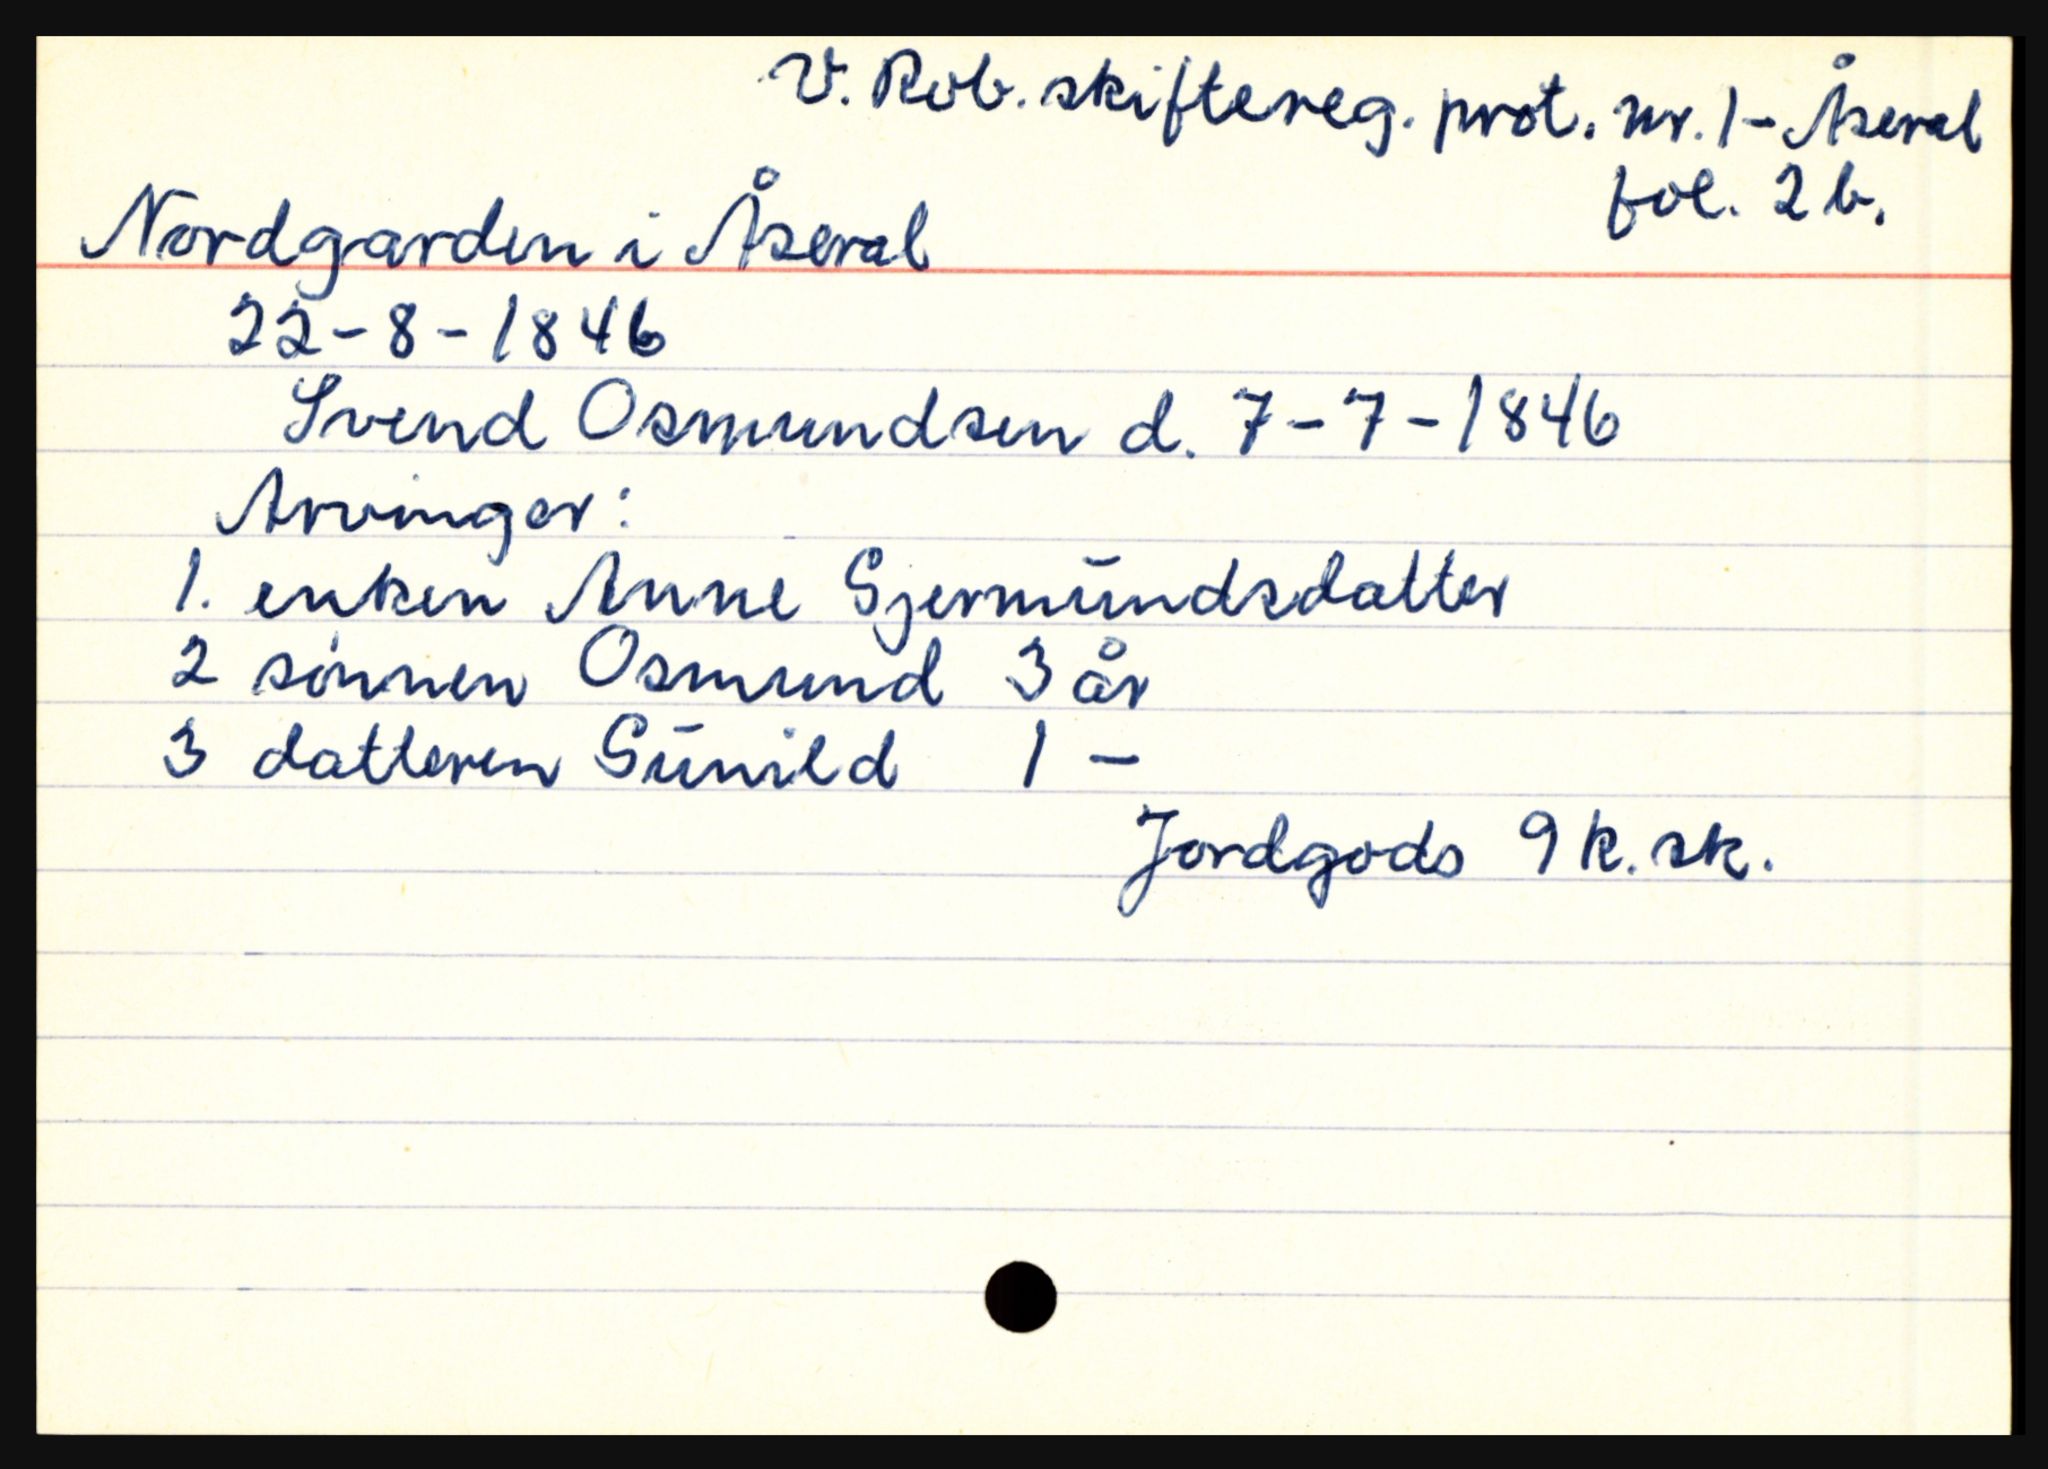 V. Rob. skiftereg. prot. nr. 1 - Åseral
fol. 2b.
Nordgarden i Åseral
22-8-1846
Svend Osmundsen d. 7-7-1846
Arvinger:
1. enken Anne Gjermūndsdatter
2 sønnen Osmund 3 år
3 datteren Gūnild 1 -
Jordgods 9 k. sk.